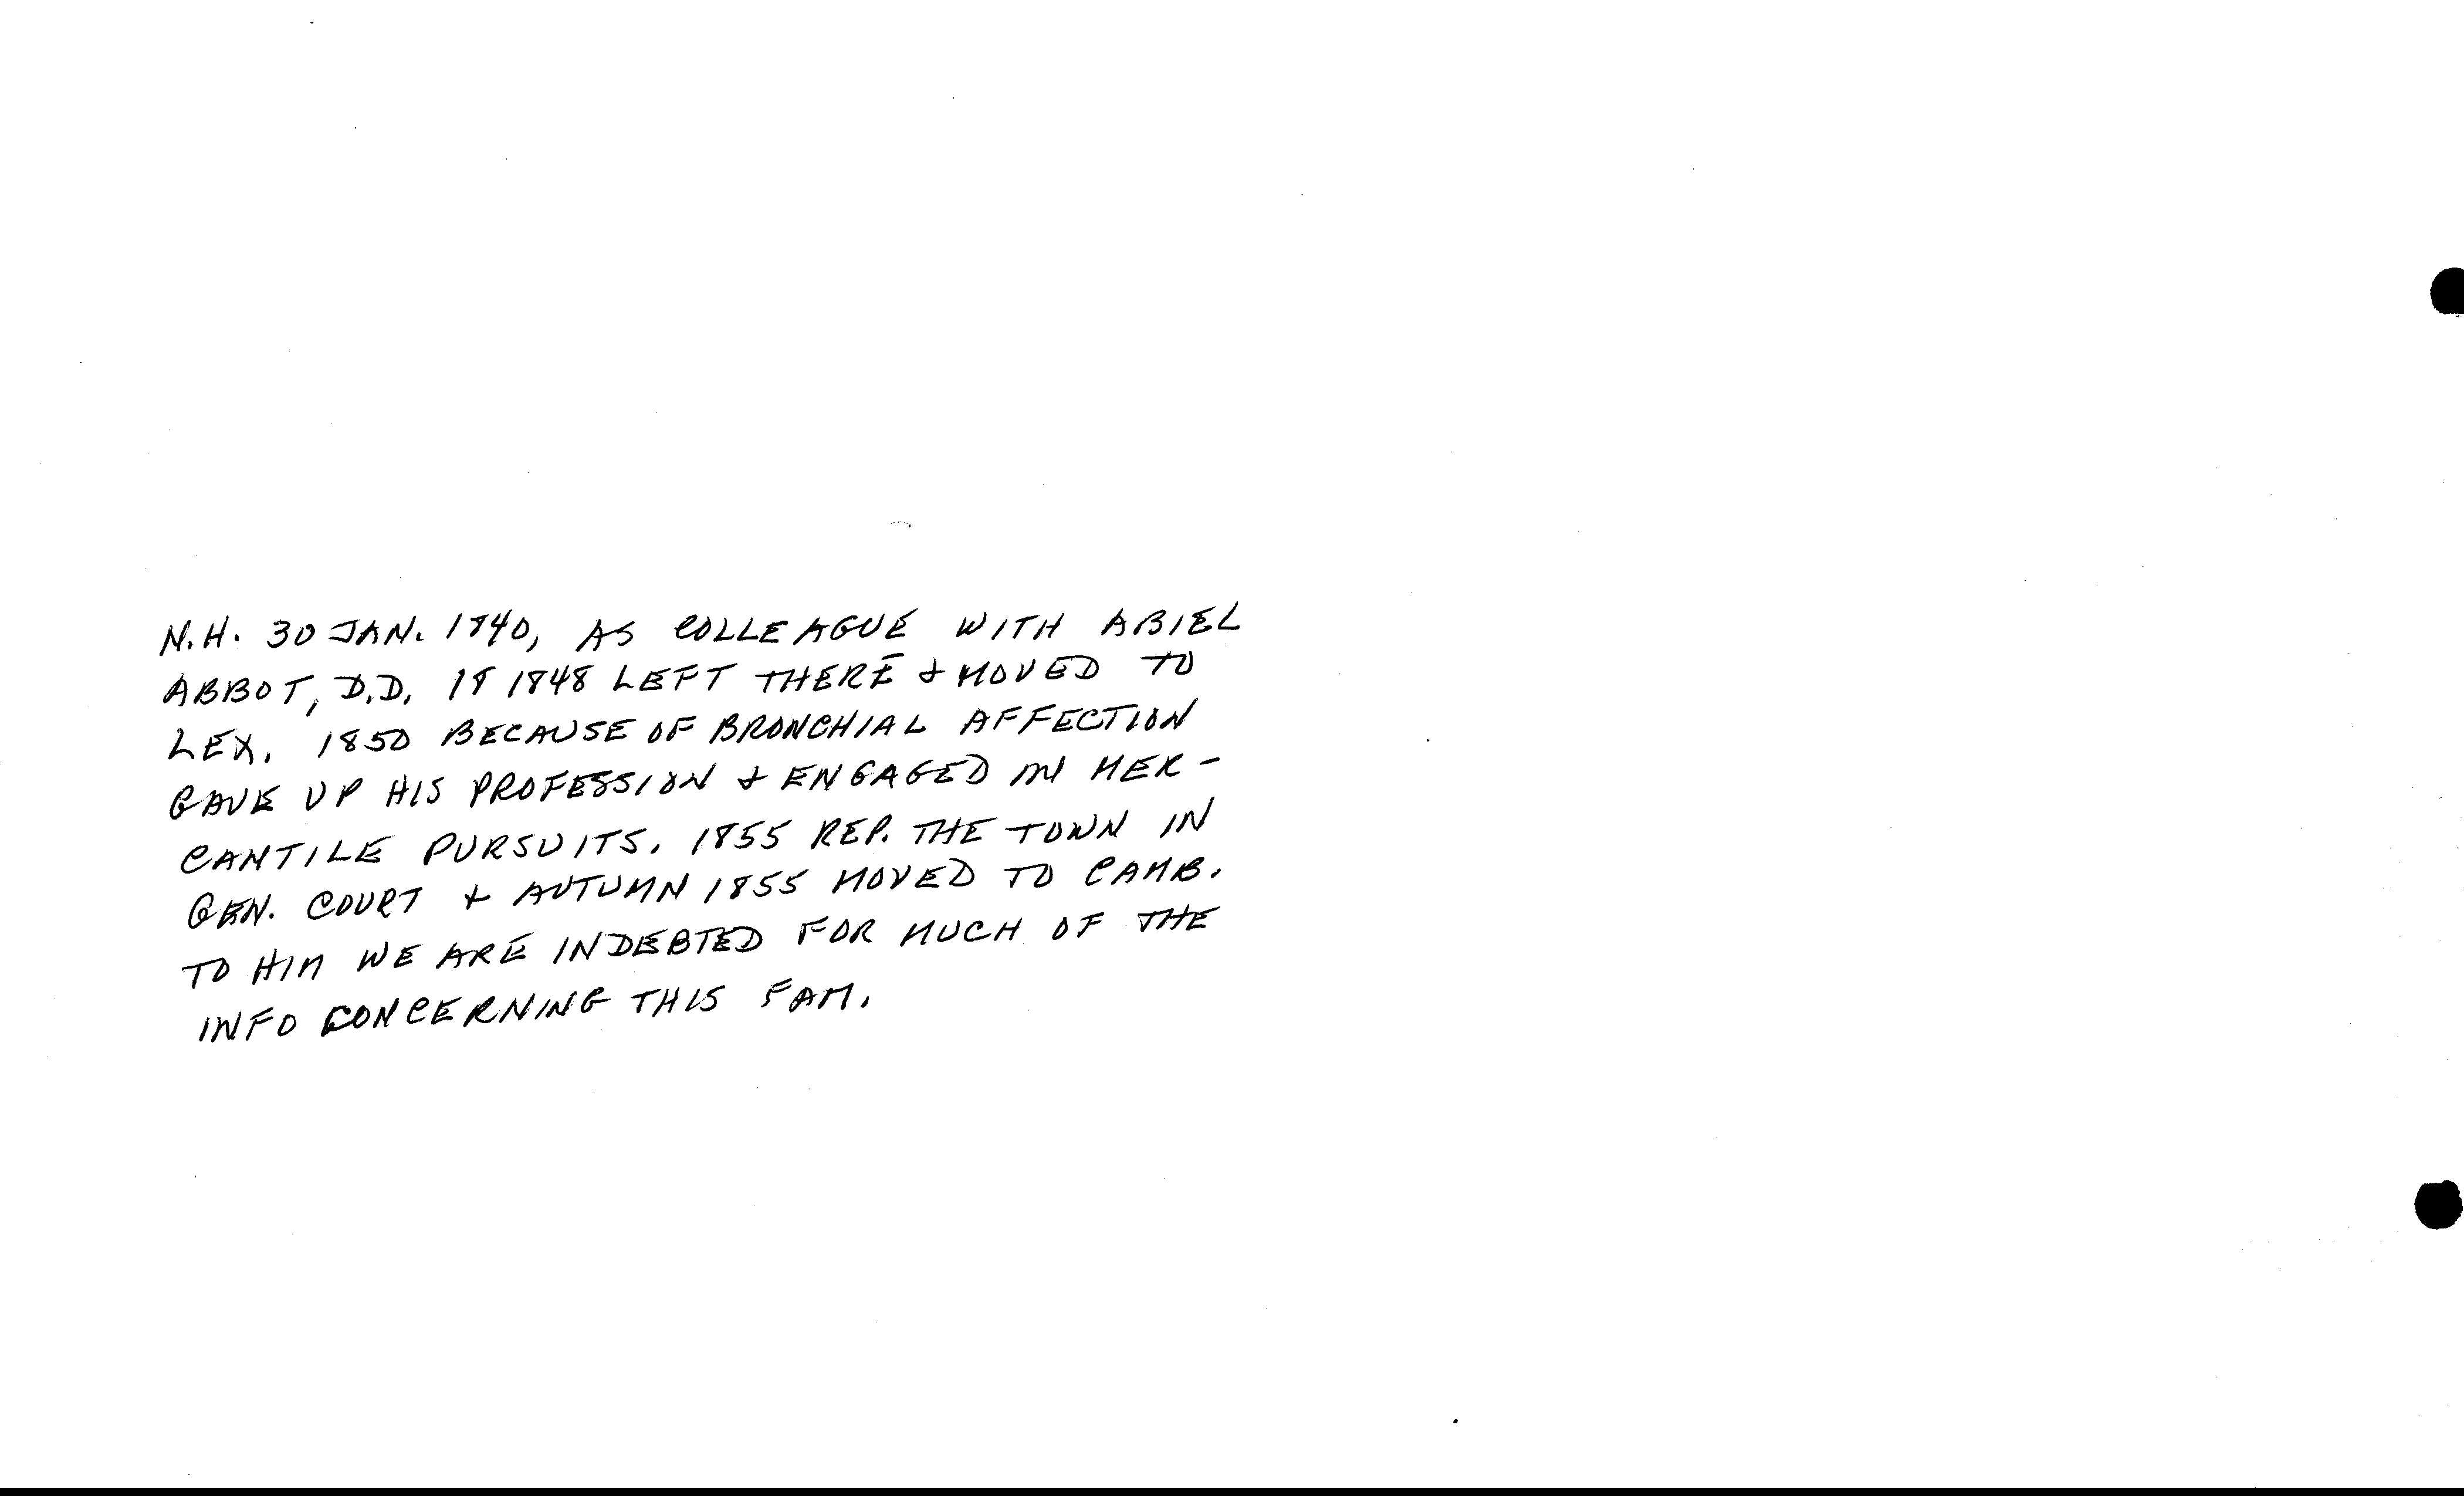 N.H. 30 JAN. 1840, AS COLLEAGUE WITH ABIEL
ABBOT, D.D. 18 1848 LEFT THERE & MOVED TO
LEX. 1850 BECAUSE OF BRONCHIAL AFFECTION
GAVE UP HIS PROFESSION & ENGAGED IN MER-
CANTILE PURSUITS. 1855 REP. THE TOWN IN
GEN. COURT & AUTUMN 1855 MOVED TO CAMB.
TO HIM WE ARE INDEBTED FOR MUCH OF THE
INFO CONCERNING THIS FAM.